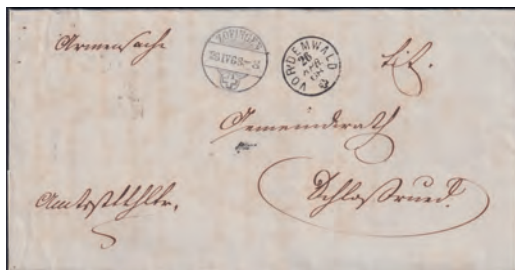 Armensache
ZOFINGEN
26 IV 68
VORDEMWALD
26
APR
68
Tit.
Gemeinderath
Schloßrued.